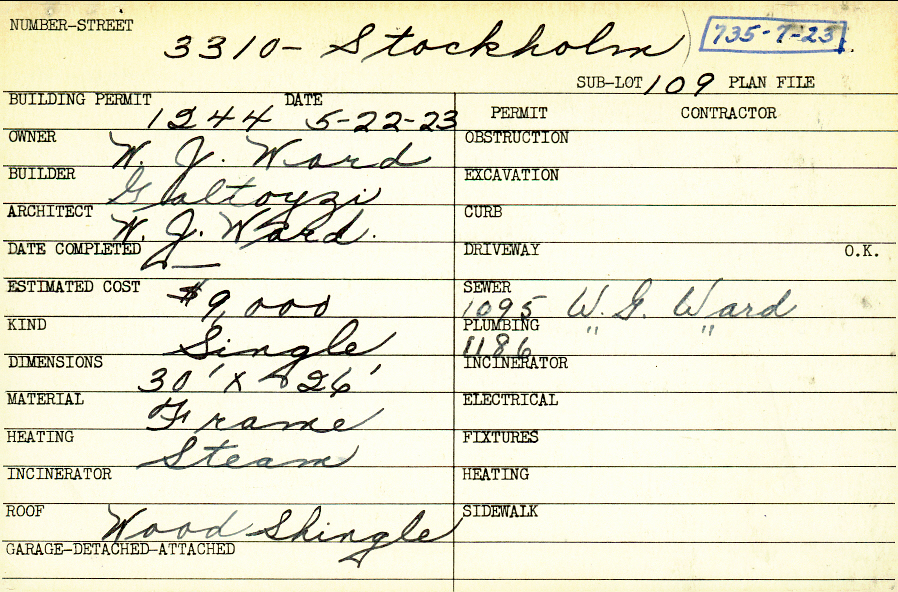 NUMBER-STREET
3310- Stockholm
735-7-23
SUB-LOT 109 PLAN FILE
BUILDING PERMIT DATE
1244 5-22-23
OWNER
W. J. Ward
BUILDER
ARCHITECT
W. J. Ward.
DATE COMPLETED
ESTIMATED COST
$9,000
KIND
Single
DIMENSIONS
30' x 26'
MATERIAL
Frame
HEATING
Steam
INCINERATOR
ROOF
Wood Shingle
GARAGE-DETACHED-ATTACHED
PERMIT CONTRACTOR
OBSTRUCTION
EXCAVATION
CURB
DRIVEWAY O.K.
SEWER
1095 W. G. Ward
PLUMBING
1186 " "
INCINERATOR
ELECTRICAL
FIXTURES
HEATING
SIDEWALK